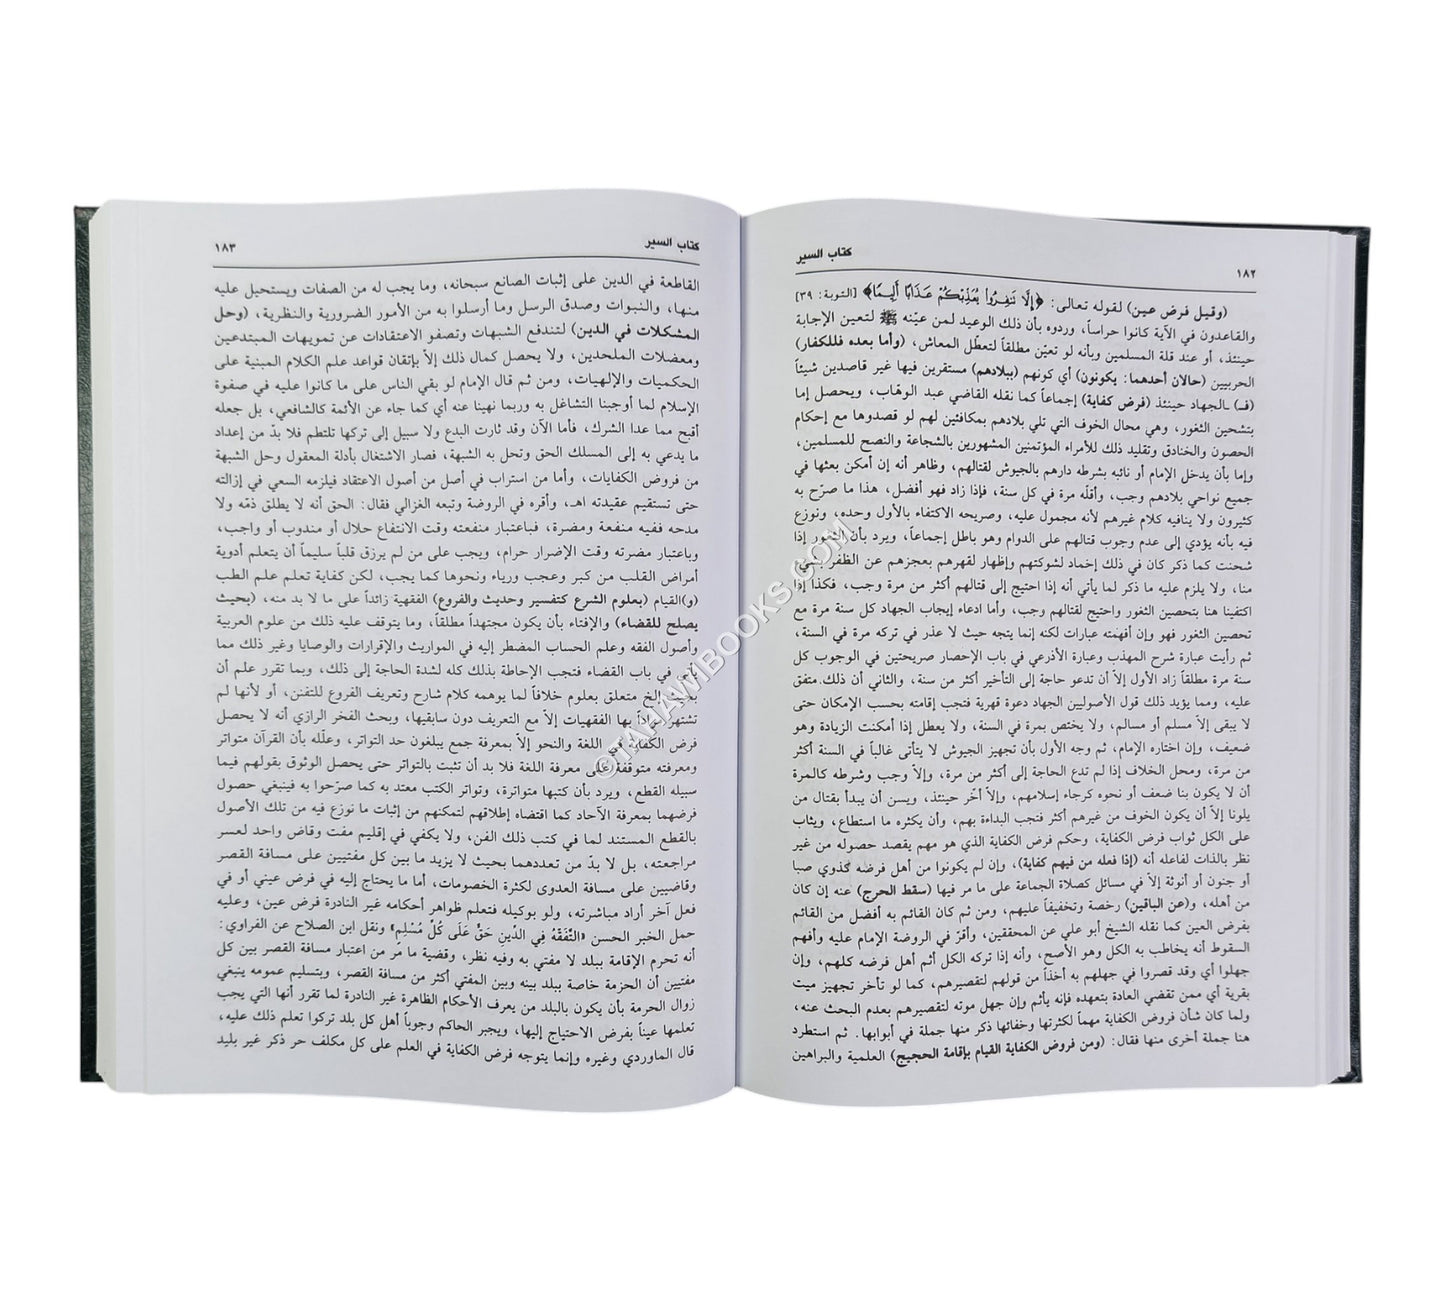 ١٨٢
كتاب السير
(وقيل فرض عين) لقوله تعالى: ﴿إِلَّا تَنفِرُوا يُعَذِّبْكُمْ عَذَابًا أَلِيمًا﴾ [التوبة: ٣٩]
والقاعدون في الآية كانوا حراساً، وردوه بأن ذلك الوعيد لمن عيّنه ﷺ لتعين الإجابة
حينئذ، أو عند قلة المسلمين وبأنه لو تعيّن مطلقاً لتعطّل المعاش، (وأما بعده فللكفار)
الحربيين (حالان أحدهما: يكونون) أي كونهم (ببلادهم) مستقرين فيها غير قاصدين شيئاً
(فـ) ـالجهاد حينئذ (فرض كفاية) إجماعاً كما نقله القاضي عبد الوهاب، ويحصل إما
بتشحين الثغور، وهي محال الخوف التي تلي بلادهم بمكافئين لهم لو قصدوها مع إحكام
الحصون والخنادق وتقليد ذلك للأمراء المؤتمنين المشهورين بالشجاعة والنصح للمسلمين،
وإما بأن يدخل الإمام أو نائبه بشرطه دارهم بالجيوش لقتالهم، وظاهر أنه إن أمكن بعثها في
جميع نواحي بلادهم وجب، وأقلّه مرة في كل سنة، فإذا زاد فهو أفضل، هذا ما صرّح به
كثيرون ولا ينافيه كلام غيرهم لأنه مجمول عليه، وصريحه الاكتفاء بالأول وحده، ونوزع
فيه بأنه يؤدي إلى عدم وجوب قتالهم على الدوام وهو باطل إجماعاً، ويرد بأن الثغور إذا
شحنت كما ذكر كان في ذلك إخماد لشوكتهم وإظهار لقهرهم بعجزهم عن الظفر بشيء
منا، ولا يلزم عليه ما ذكر لما يأتي أنه إذا احتيج إلى قتالهم أكثر من مرة وجب، فكذا إذا
اكتفينا هنا بتحصين الثغور واحتيج لقتالهم وجب، وأما ادعاء إيجاب الجهاد كل سنة مرة مع
تحصين الثغور فهو وإن أفهمته عبارات لكنه إنما يتجه حيث لا عذر في تركه مرة في السنة،
ثم رأيت عبارة شرح المهذب وعبارة الأذرعي في باب الإحصار صريحتين في الوجوب كل
سنة مرة مطلقاً زاد الأول إلاّ أن تدعو حاجة إلى التأخير أكثر من سنة، والثاني أن ذلك متفق
عليه، ومما يؤيد ذلك قول الأصوليين الجهاد دعوة قهرية فتجب إقامته بحسب الإمكان حتى
لا يبقى إلاّ مسلم أو مسالم، ولا يختص بمرة في السنة، ولا يعطل إذا أمكنت الزيادة وهو
ضعيف، وإن اختاره الإمام، ثم وجه الأول بأن تجهيز الجيوش لا يتأتى غالباً في السنة أكثر
من مرة، ومحل الخلاف إذا لم تدع الحاجة إلى أكثر من مرة، وإلاّ وجب وشرطه كالمرة
أن لا يكون بنا ضعف أو نحوه كرجاء إسلامهم، وإلاّ أخّر حينئذ، ويسن أن يبدأ بقتال من
يلونا إلاّ أن يكون الخوف من غيرهم أكثر فتجب البداءة بهم، وأن يكثره ما استطاع، ويثاب
على الكل ثواب فرض الكفاية، وحكم فرض الكفاية الذي هو مهم يقصد حصوله من غير
نظر بالذات لفاعله أنه (إذا فعله من فيهم كفاية)، وإن لم يكونوا من أهل فرضه كذوي صبا
أو جنون أو أنوثة إلاّ في مسائل كصلاة الجماعة على ما مر فيها (سقط الحرج) عنه إن كان
من أهله، و(عن الباقين) رخصة وتخفيفاً عليهم، ومن ثم كان القائم به أفضل من القائم
بفرض العين كما نقله الشيخ أبو علي عن المحققين، وأقرّ في الروضة الإمام عليه وأفهم
السقوط أنه يخاطب به الكل وهو الأصح، وأنه إذا تركه الكل أثم أهل فرضه كلهم، وإن
جهلوا أي وقد قصروا في جهلهم به أخذاً من قولهم لتقصيرهم، كما لو تأخر تجهيز ميت
بقرية أي ممن تقضي العادة بتعهده فإنه يأثم وإن جهل موته لتقصيرهم بعدم البحث عنه،
ولما كان شأن فروض الكفاية مهماً لكثرتها وخفائها ذكر منها جملة في أبوابها. ثم استطرد
هنا جملة أخرى منها فقال: (ومن فروض الكفاية القيام بإقامة الحجيج) العلمية والبراهين
كتاب السير
١٨٣
القاطعة في الدين على إثبات الصانع سبحانه، وما يجب له من الصفات ويستحيل عليه
منها، والنبوات وصدق الرسل وما أرسلوا به من الأمور الضرورية والنظرية، (وحل
المشكلات في الدين) لتندفع الشبهات وتصفو الاعتقادات عن تمويهات المبتدعين
ومعضلات الملحدين، ولا يحصل كمال ذلك إلاّ بإتقان قواعد علم الكلام المبنية على
الحكميات والإلهيات، ومن ثم قال الإمام لو بقي الناس على ما كانوا عليه في صفوة
الإسلام لما أوجبنا التشاغل به وربما نهينا عنه أي كما جاء عن الأئمة كالشافعي، بل جعله
أقبح مما عدا الشرك، فأما الآن وقد ثارت البدع ولا سبيل إلى تركها تلتطم فلا بدّ من إعداد
ما يدعي به إلى المسلك الحق وتحل به الشبهة، فصار الاشتغال بأدلة المعقول وحل الشبهة
من فروض الكفايات، وأما من استراب في أصل من أصول الاعتقاد فيلزمه السعي في إزالته
حتى تستقيم عقيدته اهـ، وأقره في الروضة وتبعه الغزالي فقال: الحق أنه لا يطلق ذمّه ولا
مدحه ففيه منفعة ومضرة، فباعتبار منفعته وقت الانتفاع حلال أو مندوب أو واجب،
وباعتبار مضرته وقت الإضرار حرام، ويجب على من لم يرزق قلباً سليماً أن يتعلم أدوية
أمراض القلب من كبر وعجب ورياء ونحوها كما يجب، لكن كفاية تعلم علم الطب
(و)القيام (بعلوم الشرع كتفسير وحديث والفروع) الفقهية زائداً على ما لا بد منه، (بحيث
يصلح للقضاء) والإفتاء بأن يكون مجتهداً مطلقاً، وما يتوقف عليه ذلك من علوم العربية
وأصول الفقه وعلم الحساب المضطر إليه في المواريث والإقرارات والوصايا وغير ذلك مما
يأتي في باب القضاء فتجب الإحاطة بذلك كله لشدة الحاجة إلى ذلك، وبما تقرر علم أن
بحيث الخ متعلق بعلوم خلافاً لما يوهمه كلام شارح وتعريف الفروع للتفنن، أو لأنها لم
تشتهر مراداً بها الفقهيات إلاّ مع التعريف دون سابقيها، وبحث الفخر الرازي أنه لا يحصل
فرض الكفاية في اللغة والنحو إلاّ بمعرفة جمع يبلغون حد التواتر، وعلّله بأن القرآن متواتر
ومعرفته متوقفة على معرفة اللغة فلا بد أن تثبت بالتواتر حتى يحصل الوثوق بقولهم فيما
سبيله القطع، ويرد بأن كتبها متواترة، وتواتر الكتب معتد به كما صرّحوا به فينبغي حصول
فرضهما بمعرفة الآحاد كما اقتضاه إطلاقهم لتمكنهم من إثبات ما نوزع فيه من تلك الأصول
بالقطع المستند لما في كتب ذلك الفن، ولا يكفي في إقليم مفت وقاض واحد لعسر
مراجعته، بل لا بدّ من تعددهما بحيث لا يزيد ما بين كل مفتيين على مسافة القصر
وقاضيين على مسافة العدوى لكثرة الخصومات، أما ما يحتاج إليه في فرض عيني أو في
فعل آخر أراد مباشرته، ولو بوكيله فتعلم ظواهر أحكامه غير النادرة فرض عين، وعليه
حمل الخبر الحسن «التَّفَقُّهُ فِي الدِّينِ حَقٌّ عَلَى كُلِّ مُسْلِمٍ» ونقل ابن الصلاح عن الفراوي:
أنه تحرم الإقامة ببلد لا مفتي به وفيه نظر، وقضية ما مرّ من اعتبار مسافة القصر بين كل
مفتيين أن الحرمة خاصة ببلد بينه وبين المفتي أكثر من مسافة القصر، وبتسليم عمومه ينبغي
زوال الحرمة بأن يكون بالبلد من يعرف الأحكام الظاهرة غير النادرة لما تقرر أنها التي يجب
تعلمها عيناً بفرض الاحتياج إليها، ويجبر الحاكم وجوباً أهل كل بلد تركوا تعلم ذلك عليه،
قال الماوردي وغيره وإنما يتوجه فرض الكفاية في العلم على كل مكلف حر ذكر غير بليد